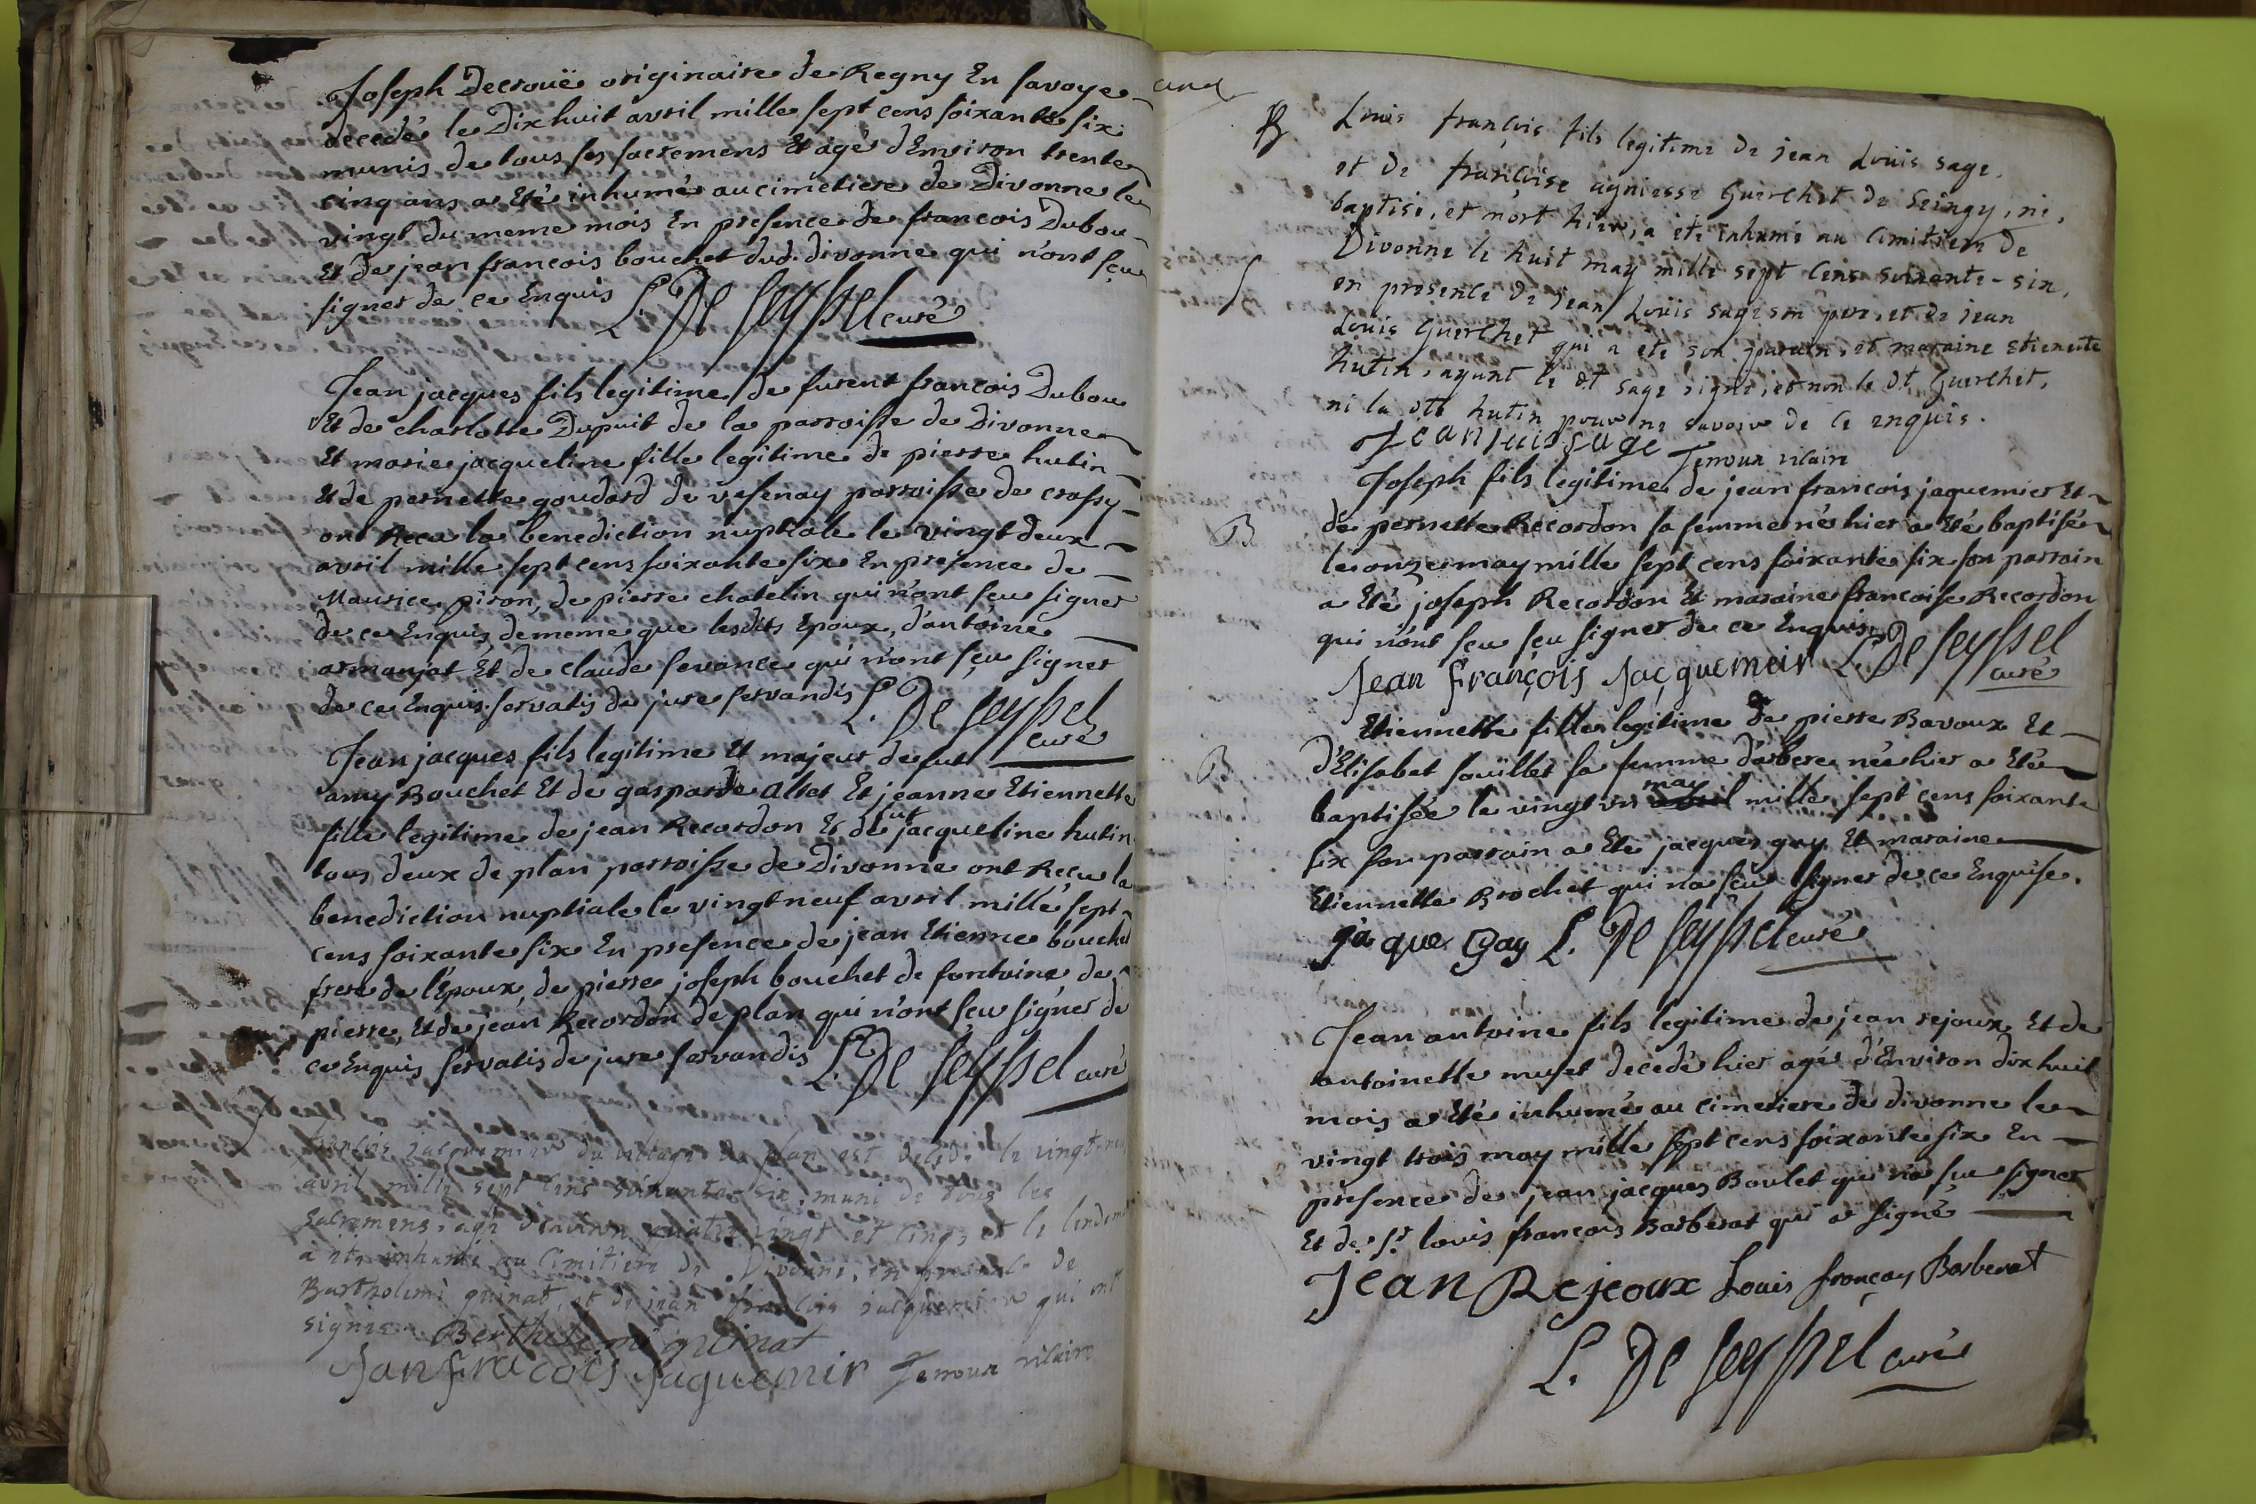 Joseph Decrouë originaire de Regny En Savoye
decedé le Dixhuit avril mille sept cens soixante six
munis de tous ses sacremens Et agé d'Environ trente
cinq ans a Eté inhumé au cimetiere de Divonne le
vingt du meme mois En presence de francois Dubou
Et de jean francois bouchet dud. divonne qui n'ont sçu
signer de ce Enquis L. De Seyssel curé
Jean jacques fils legitime de furent francois Dubou
Et de charlotte Dupuit de la parroisse de Divonne
Et marie jacqueline fille legitime de pierre hutin
Et de pernette goudard de vesenay parroisse de crassy
ont Recu la benediction nuptiale le vingt deux
avril mille sept cens soixante six En presence de
Maurice piron, de pierre chatelin qui n'ont sçu signer
de ce Enquis, de meme que lesdits Epoux, d'antoine
armanjat Et de claude servance qui n'ont sçu signer
de ce Enquis. servatis de jure servandis L. De Seyssel
curé
Jean jacques fils legitime Et majeur de fut
amy Bouchet Et de gasparde altet Et jeanne Etiennette
fille legitime de jean Recordon Et de fut jacqueline hutin
tous deux de plan parroisse de Divonne ont Recu la
benediction nuptiale le vingt neuf avril mille sept
cens soixante six En presence de jean Etienne bouchet
frere de l'Epoux, de pierre joseph bouchet de fontaine, de
pierre, Et de jean Recordon de plan qui n'ont sçu signer de
ce Enquis servatis de jure servandis L. De Seyssel curé
françois jacquemier du village de plan est decedé le vingt-neuf
avril mille sept cens soixante six, muni de tous les
sacremens, agé d'environ quatre vingt et cinq, et le lendem
a été inhumé au cimitiere de Divonne, en presence de
Bartholemi guinat, et de jean françois jacquemier qui ont
signés. Berthelemi guinat
Jan fracois Jaquemir Jenoux vicaire
Louis françois fils legitime de jean Loüis sage,
et de françoise agniesse Guerchet de Gringy, né,
baptisé, et mort hier, a eté inhumé au cimitiere de
Divonne le huit may mille sept cens soixante-six,
en presence de jean Loüis sage son pere, et de jean
Louis Guerchet qui a eté son parrain, et maraine etienette
hutin, ayant le dt sage signé, et non le dt Guerchet,
ni la dte hutin pour ne savoir de ce enquis.
Jean luis sage Jenoux vicaire
B Joseph fils legitime de jean francois jaquemier Et
de pernette Recordon sa femme né hier a Eté baptisé
le onze may mille sept cens soixante six son parrain
a Eté joseph Recordon Et maraine francoise Recordon
qui n'ont sçu sçu signer de ce Enquis
Jean François Jacquemeir L. De Seyssel
curé
B Etiennette fille legitime de pierre Bavoux Et
d'Elisabet souillet sa femme d'arbere née hier a Eté
may
baptisée le vingt un avril mille sept cens soixante
six son parrain a Eté jacques gay Et maraine
Etiennette Brochet qui n'a sçu signer de ce Enquise.
jaque Gay L. De Seyssel curé
Jean antoine fils legitime de jean rejoux Et de
antoinette muset decedé hier agé d'Environ dix huit
mois a Eté inhumé au cimetiere de divonne le
vingt trois may mille sept cens soixante six En
presence de jean jacques Boulet qui n'a sçu signer
Et de sr. louis francois Barberat qui a signé
Jean Rejeoux Louis françoy Barberat
L. De Seyssel curé